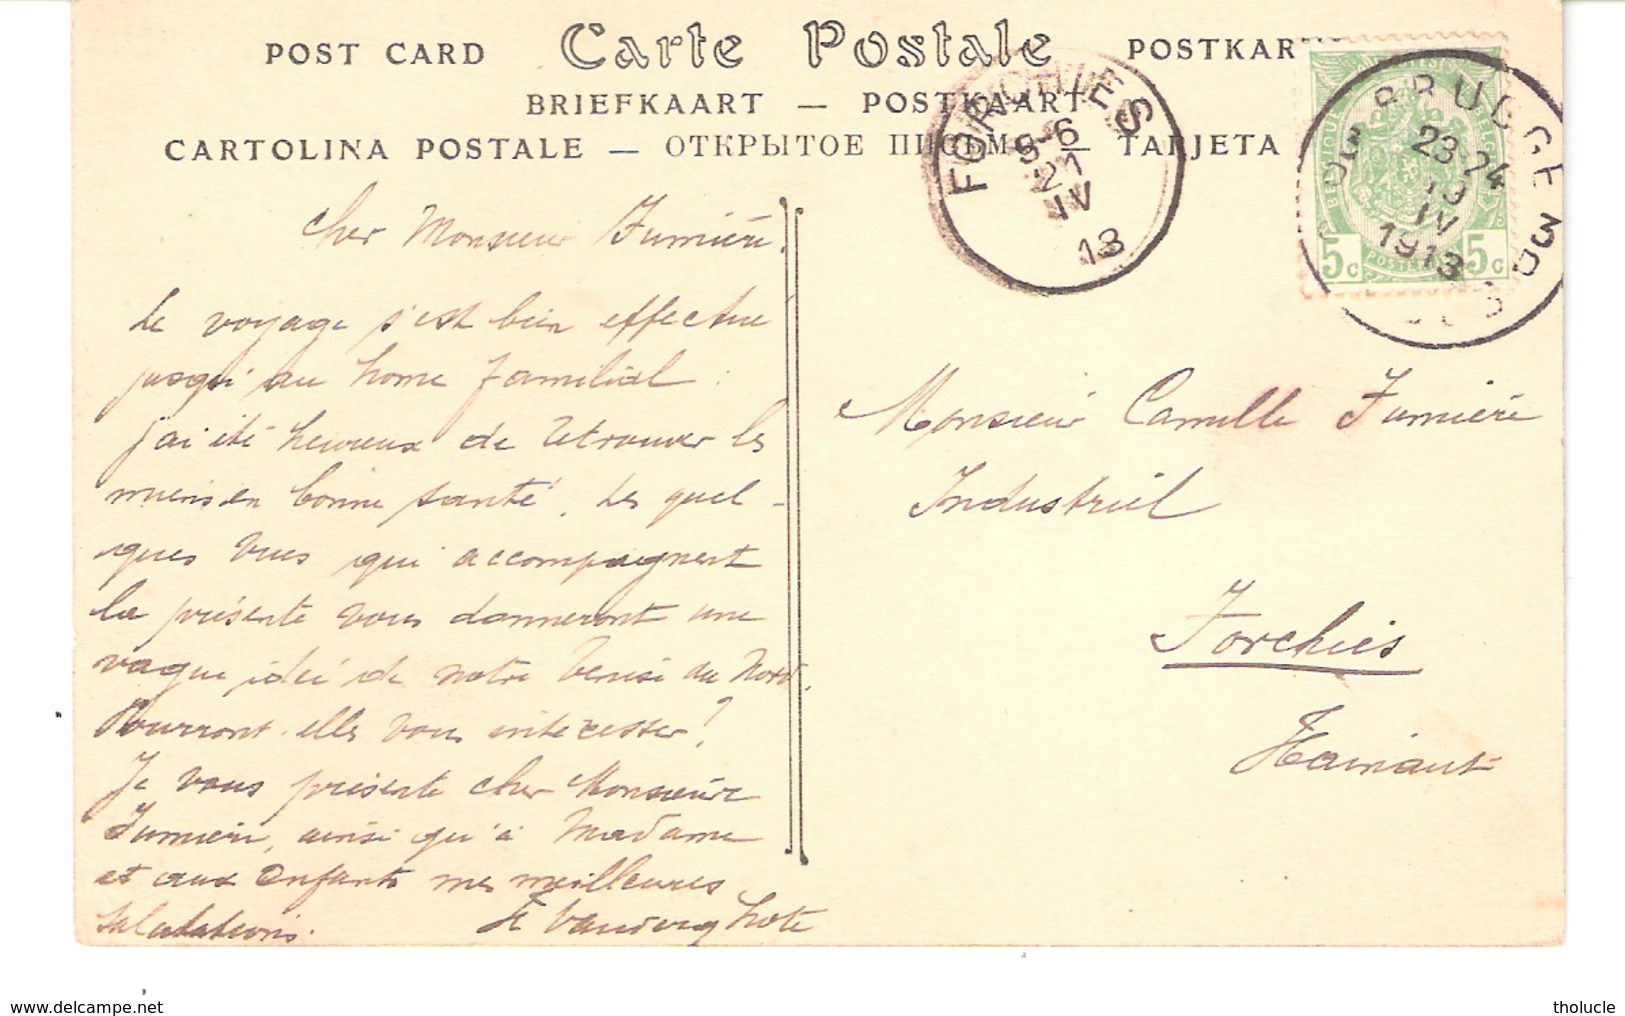 POST CARD Carte Postale POSTKARTE
BRIEFKAART — POSTKAART
CARTOLINA POSTALE — ОТКРЫТОЕ ПИСЬМО — TARJETA
FORCHIES
21
IV
13
BRUGGE
23-24
19
IV
1913
BRUGES
BELGIQUE
BELGIË
5c POSTERIJEN 5c
Cher Monsieur Fumière,
Le voyage s'est bien effectué
jusqu'au home familial :
j'ai été heureux de retrouver les
miens en bonne santé. Les quel-
ques vues qui accompagnent
la présente vous donneront une
vague idée de notre Venise du Nord.
Pourront-elles vous intéresser ?
Je vous présente cher Monsieur
Fumière, ainsi qu'à Madame
et aux enfants mes meilleures
salutations.
Monsieur Camille Fumière
Industriel
Forchies
Hainaut
www.delcampe.net
tholucle